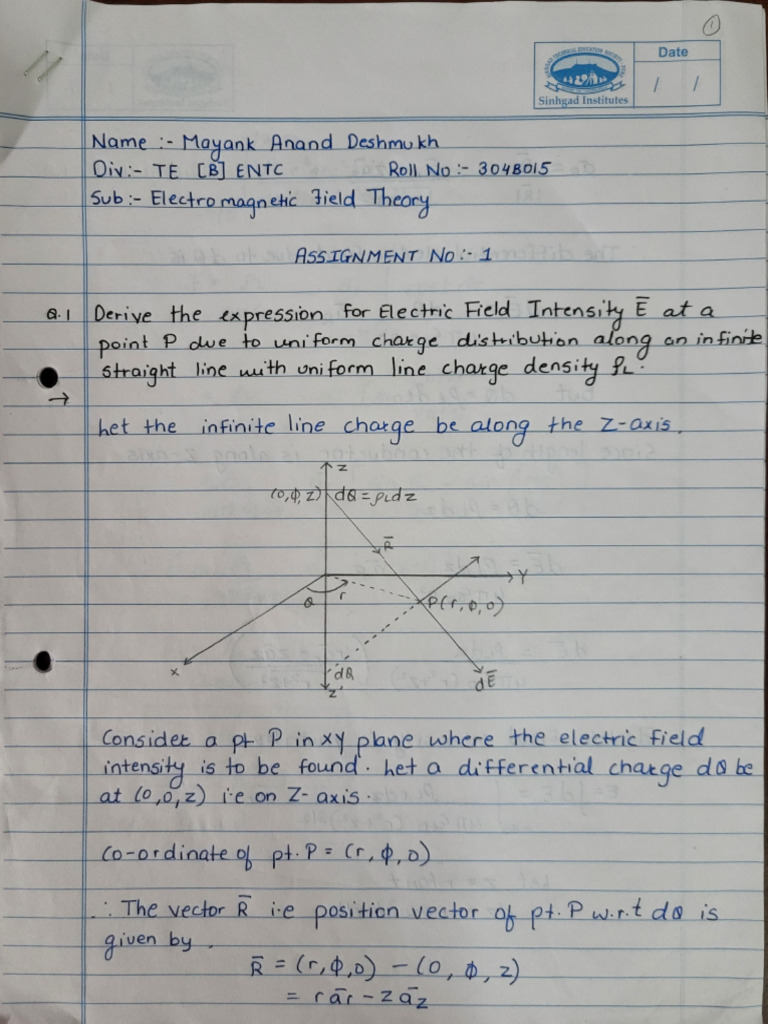 1
Date
/ /
Sinhgad Institutes
Name :- Mayank Anand Deshmukh
Div:- TE [B] ENTC Roll No :- 304B015
Sub :- Electromagnetic Field Theory
ASSIGNMENT No :- 1
Q.1 Derive the expression for Electric Field Intensity E̅ at a
point P due to uniform charge distribution along an infinite
straight line with uniform line charge density ρL.
→
Let the infinite line charge be along the Z-axis.
z
(0,ϕ,z) dQ = ρLdz
R̅
Y
r
P(r,ϕ,0)
x
dQ
z'
dE̅
Consider a pt P in XY plane where the electric field
intensity is to be found. Let a differential charge dQ be
at (0,0,z) i.e on Z-axis.
Co-ordinate of pt. P = (r, ϕ, 0)
∴ The vector R̅ i.e position vector of pt. P w.r.t dQ is
given by.
R̅ = (r,ϕ,0) - (0, ϕ, z)
= r a̅r - z a̅z